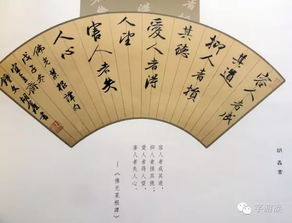 容人者成
其道
抑人者損
其德
愛人者得
人望
害人者失
人心
佛光菜根譚句
容人者成其道，
抑人者損其德，
愛人者得人望，
害人者失人心。
——《佛光菜根譚》